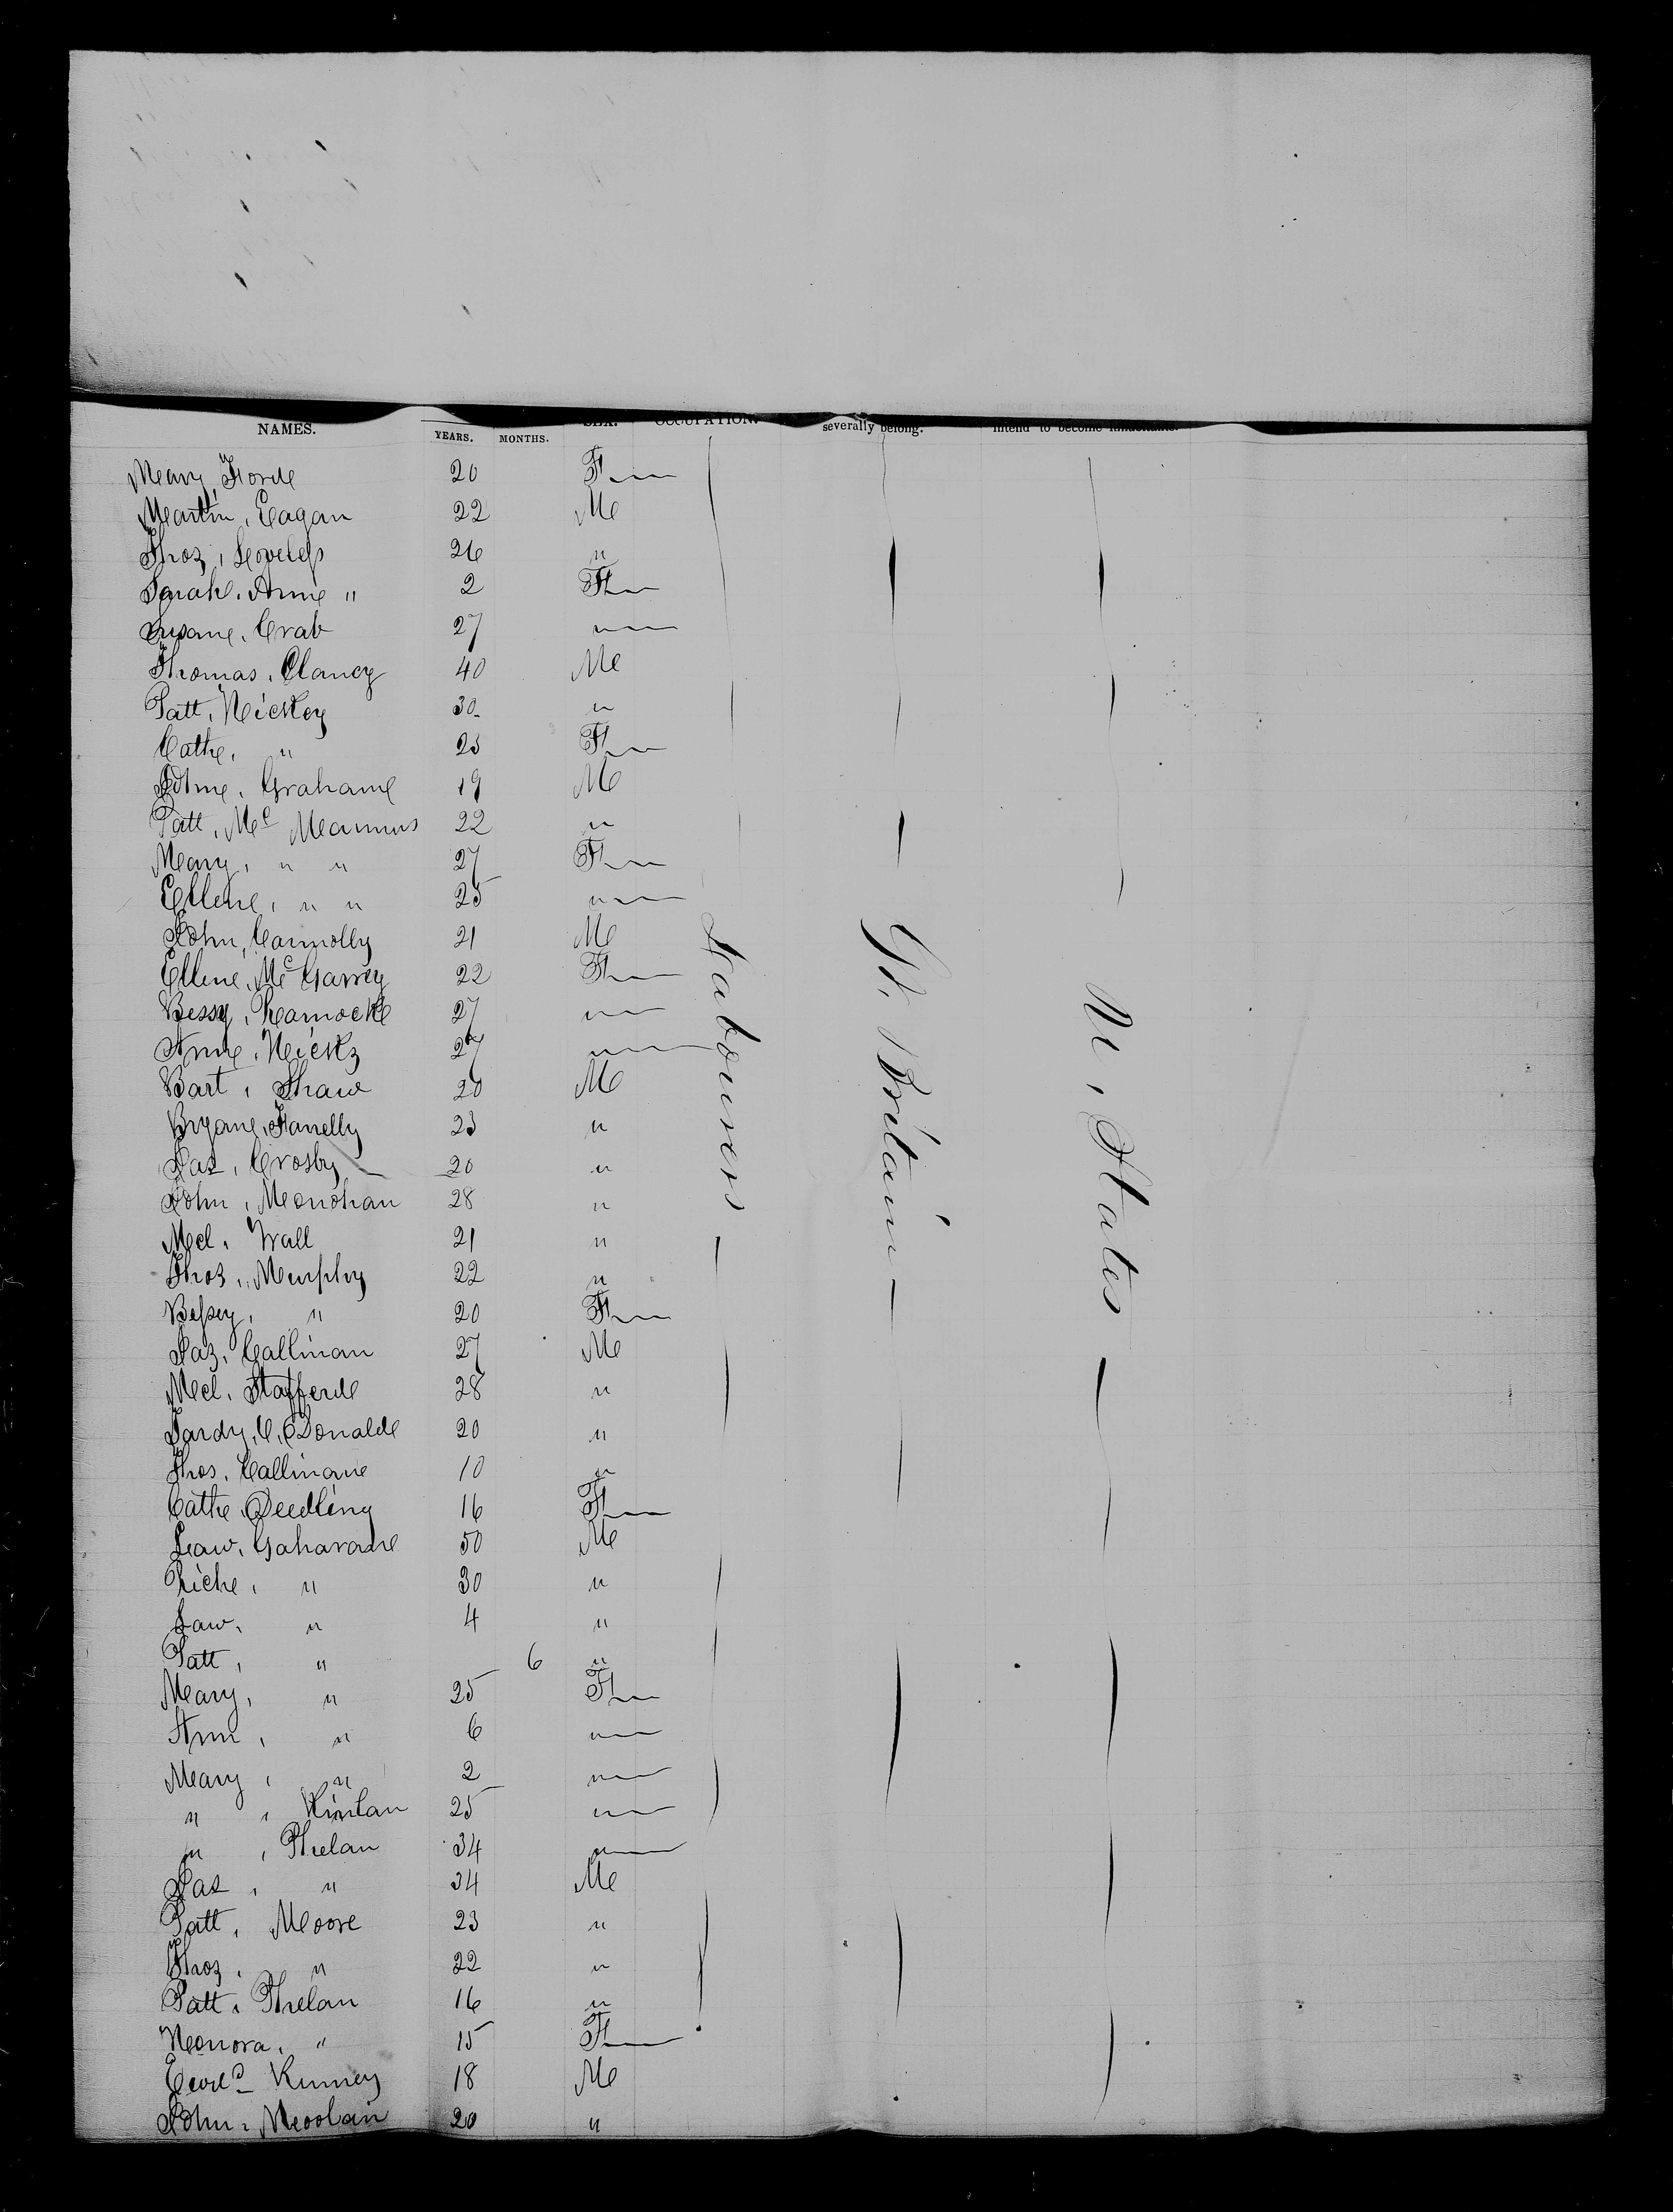 NAMES. YEARS. MONTHS. SEX. OCCUPATION. severally belong. intend to become inhabitants.
Mary, Forde 20 F
Martin, Eagan 22 M
Thoz, Loveless 26 "
Sarah. Anne " 2 F
Susane, Crab 27 "
Thomas, Clancy 40 M
Patt, Hickey 30 "
Cathe, " 25 F
Grahame 19 M
Patt, Mc Mannus 22 "
Mary, " " 27 F
Ellene, " " 25 "
John, Connolly 21 M
Ellene, Mc Garrey 22 F
Bessy, 27 "
Anne, Hickz 27 "
Bart, Shaw 20 M
Bryane, Fanelly 23 "
Jas, Crosby 20 "
John, Monohan 28 "
Mcl. Wall 21 "
Thos, Murphy 22 "
Bessey, " 20 F
Jaz, Callinan 27 M
Mcl. Stafferde 28 "
Donalde 20 "
Thos. Callinane 10 "
Cathe Deedling 16 F
Law, Gaharane 50 M
Riche, " 30 "
Law, " 4 "
Patt, " 6 "
Mary, " 25 F
Ann, " 6 "
Mary, " 2 "
" , Kinlan 25 "
" , Phelan 34 "
Jas, " 34 M
Patt, Moore 23 "
Thoz, " 22 "
Patt, Phelan 16 "
Honora, " 15 F
Edwd Kinney 18 M
John, Noolan 20 "
Labourers
Gt. Britain
U. States